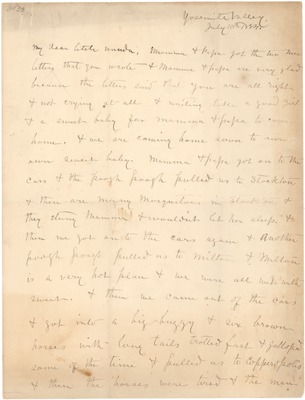 Yosemite Valley
July 10th 1885
My dear little Wanda, Mamma & Papa got the two nice
letters that you wrote & Mamma & papa are very glad
because the letters said that you are all right
& not crying at all & waiting like a good girl
& a sweet baby for mamma & papa to come
home. & we are coming home soon to our
own sweet baby. Mamma & papa got on to the
cars & the poogh poogh pulled us to Stockton,
& there are many Mosquitoes in Stockton &
they stung Mamma & wouldn't let her sleep. &
then we got on to the cars again & Another
poogh poogh pulled us to Milton. & Milton
is a very hot place & we were all wet with
sweat. & then we came out of the cars
& got into a big buggy & six brown
horses with long tails trotted fast & galloped
some of the time & pulled us to Copperopolis
& then the horses were tired & the man